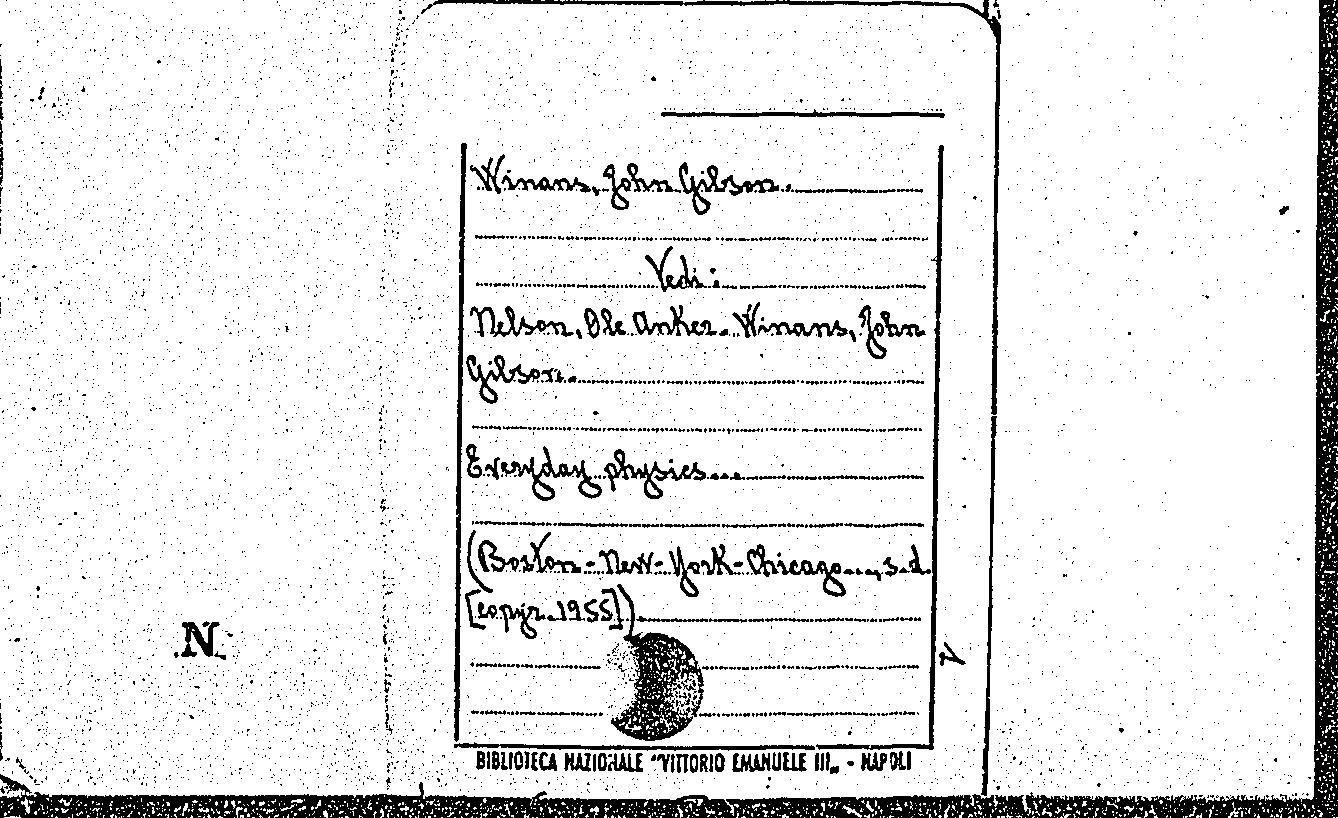 Winans, John Gibson.
Vedi:
Nelson, Ole Anker. Winans, John
Gibson.
Everyday physics...
(Boston-New-York-Chicago..., s.d.
[copyr. 1955])
N
BIBLIOTECA NAZIONALE "VITTORIO EMANUELE III„ - NAPOLI